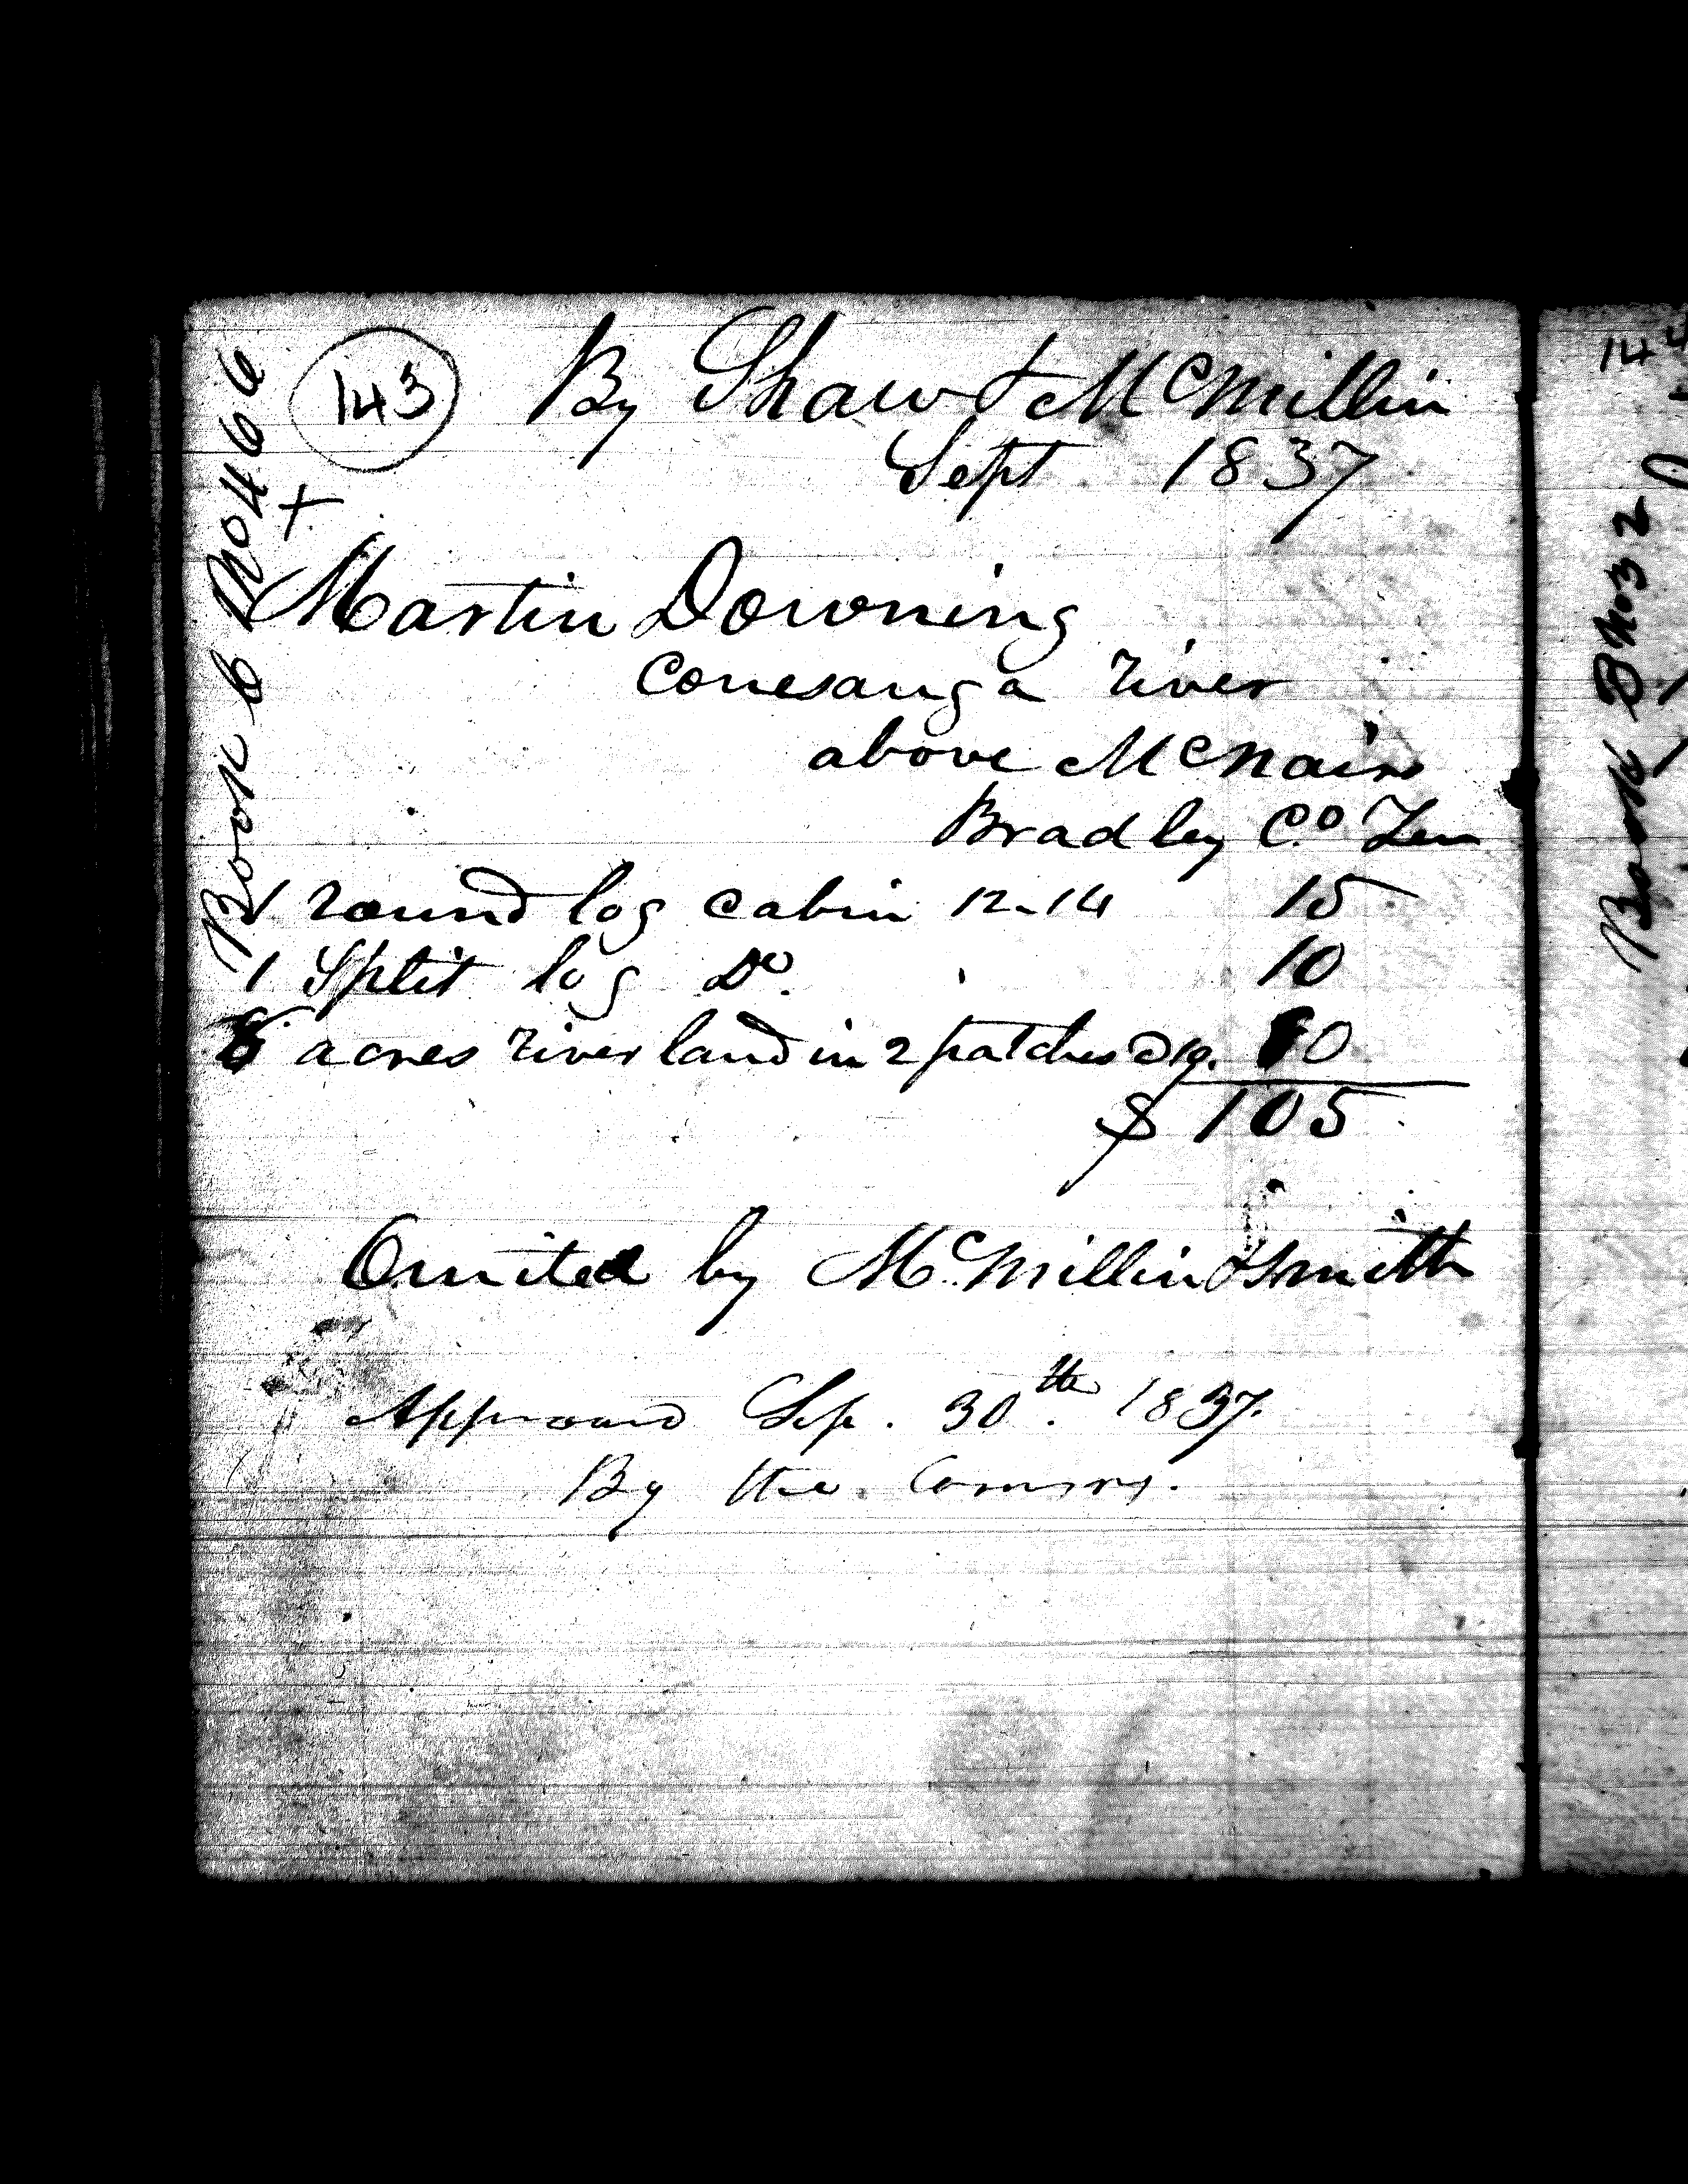 143 By Shaw & McMillin
Sept 1837
Book B No 466
x
Martin Downing
Conesauga river
above McNairs
Bradley Co. Ten
1 round log cabin 12-14 15
1 Split log Do. 10
8 acres river land in 2 patches @ 10. 80
$ 105
Omited by McMillin & Smith
Approved Sep. 30th. 1837.
By the Comsrs.
144
Book B No 32